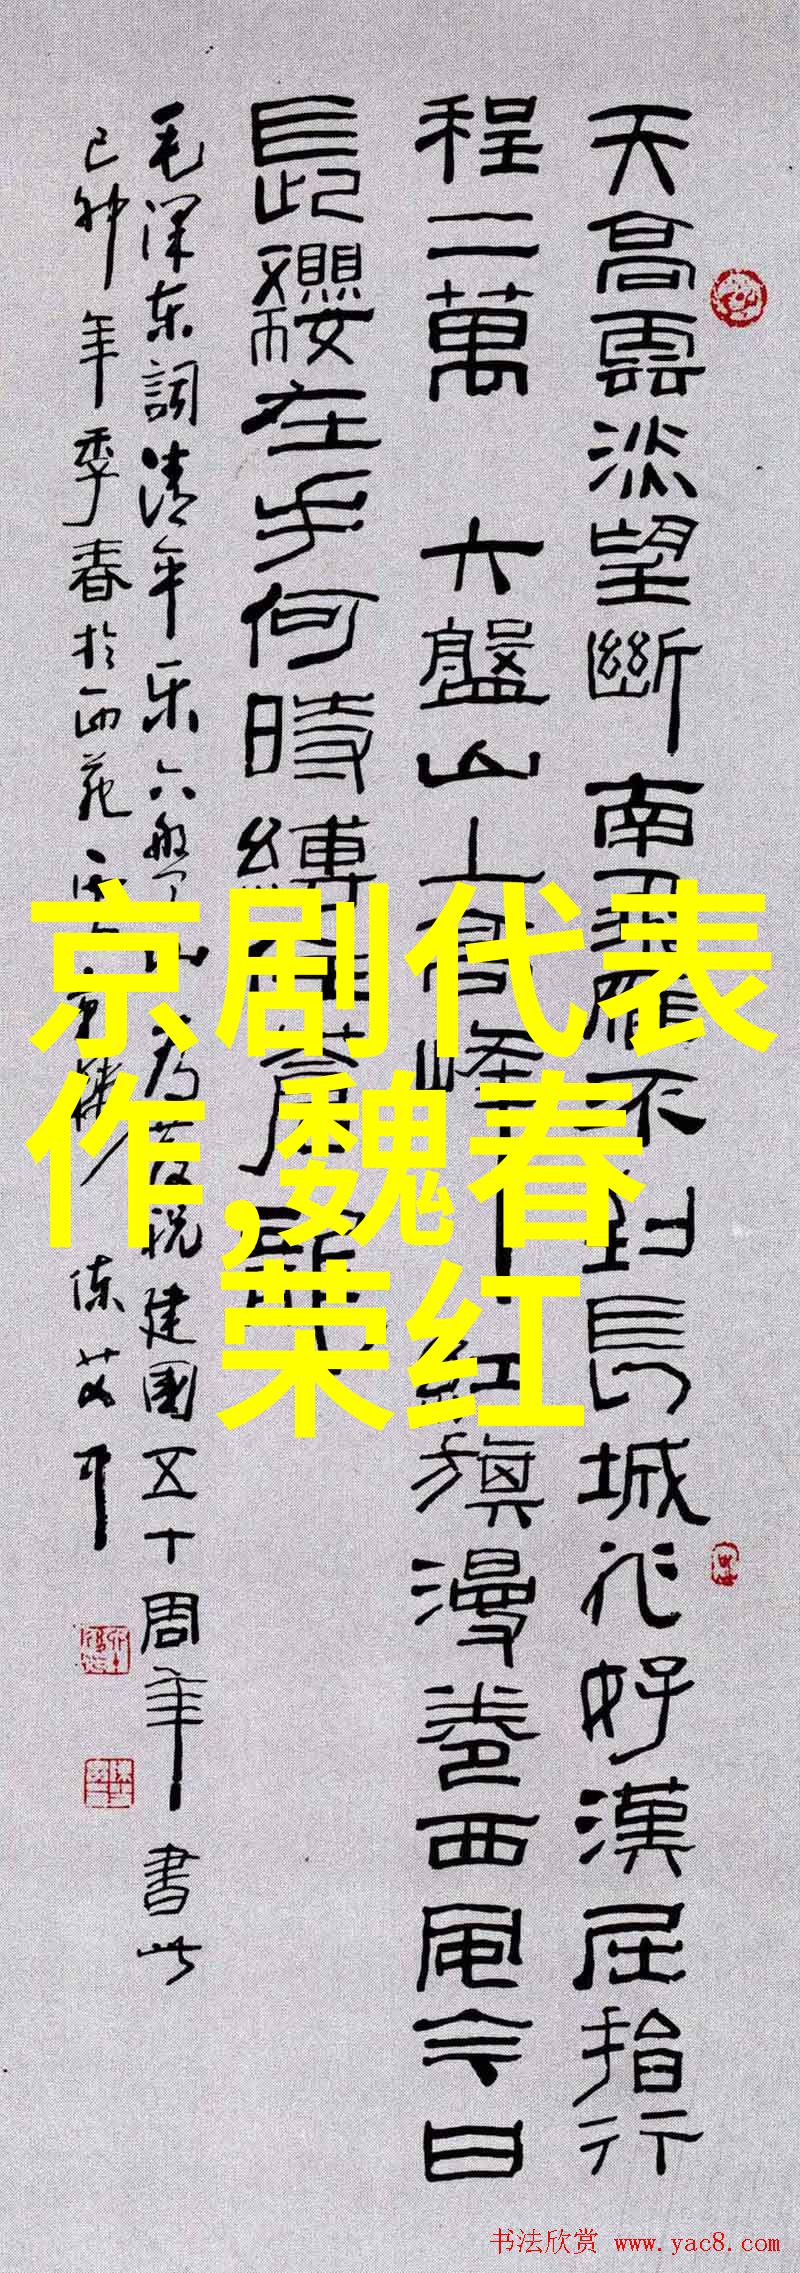 天高雲淡望斷南飛雁不到長城非好漢屈指行
程二萬 六盤山上高峰紅旗漫卷西風今日
長纓在手何時縛住蒼龍
毛泽东詞清平乐六盤山 为慶祝建國五十周年書此
己卯年季春於西苑
京剧代表
作,魏春
荣红
书法欣赏 www.yac8.com